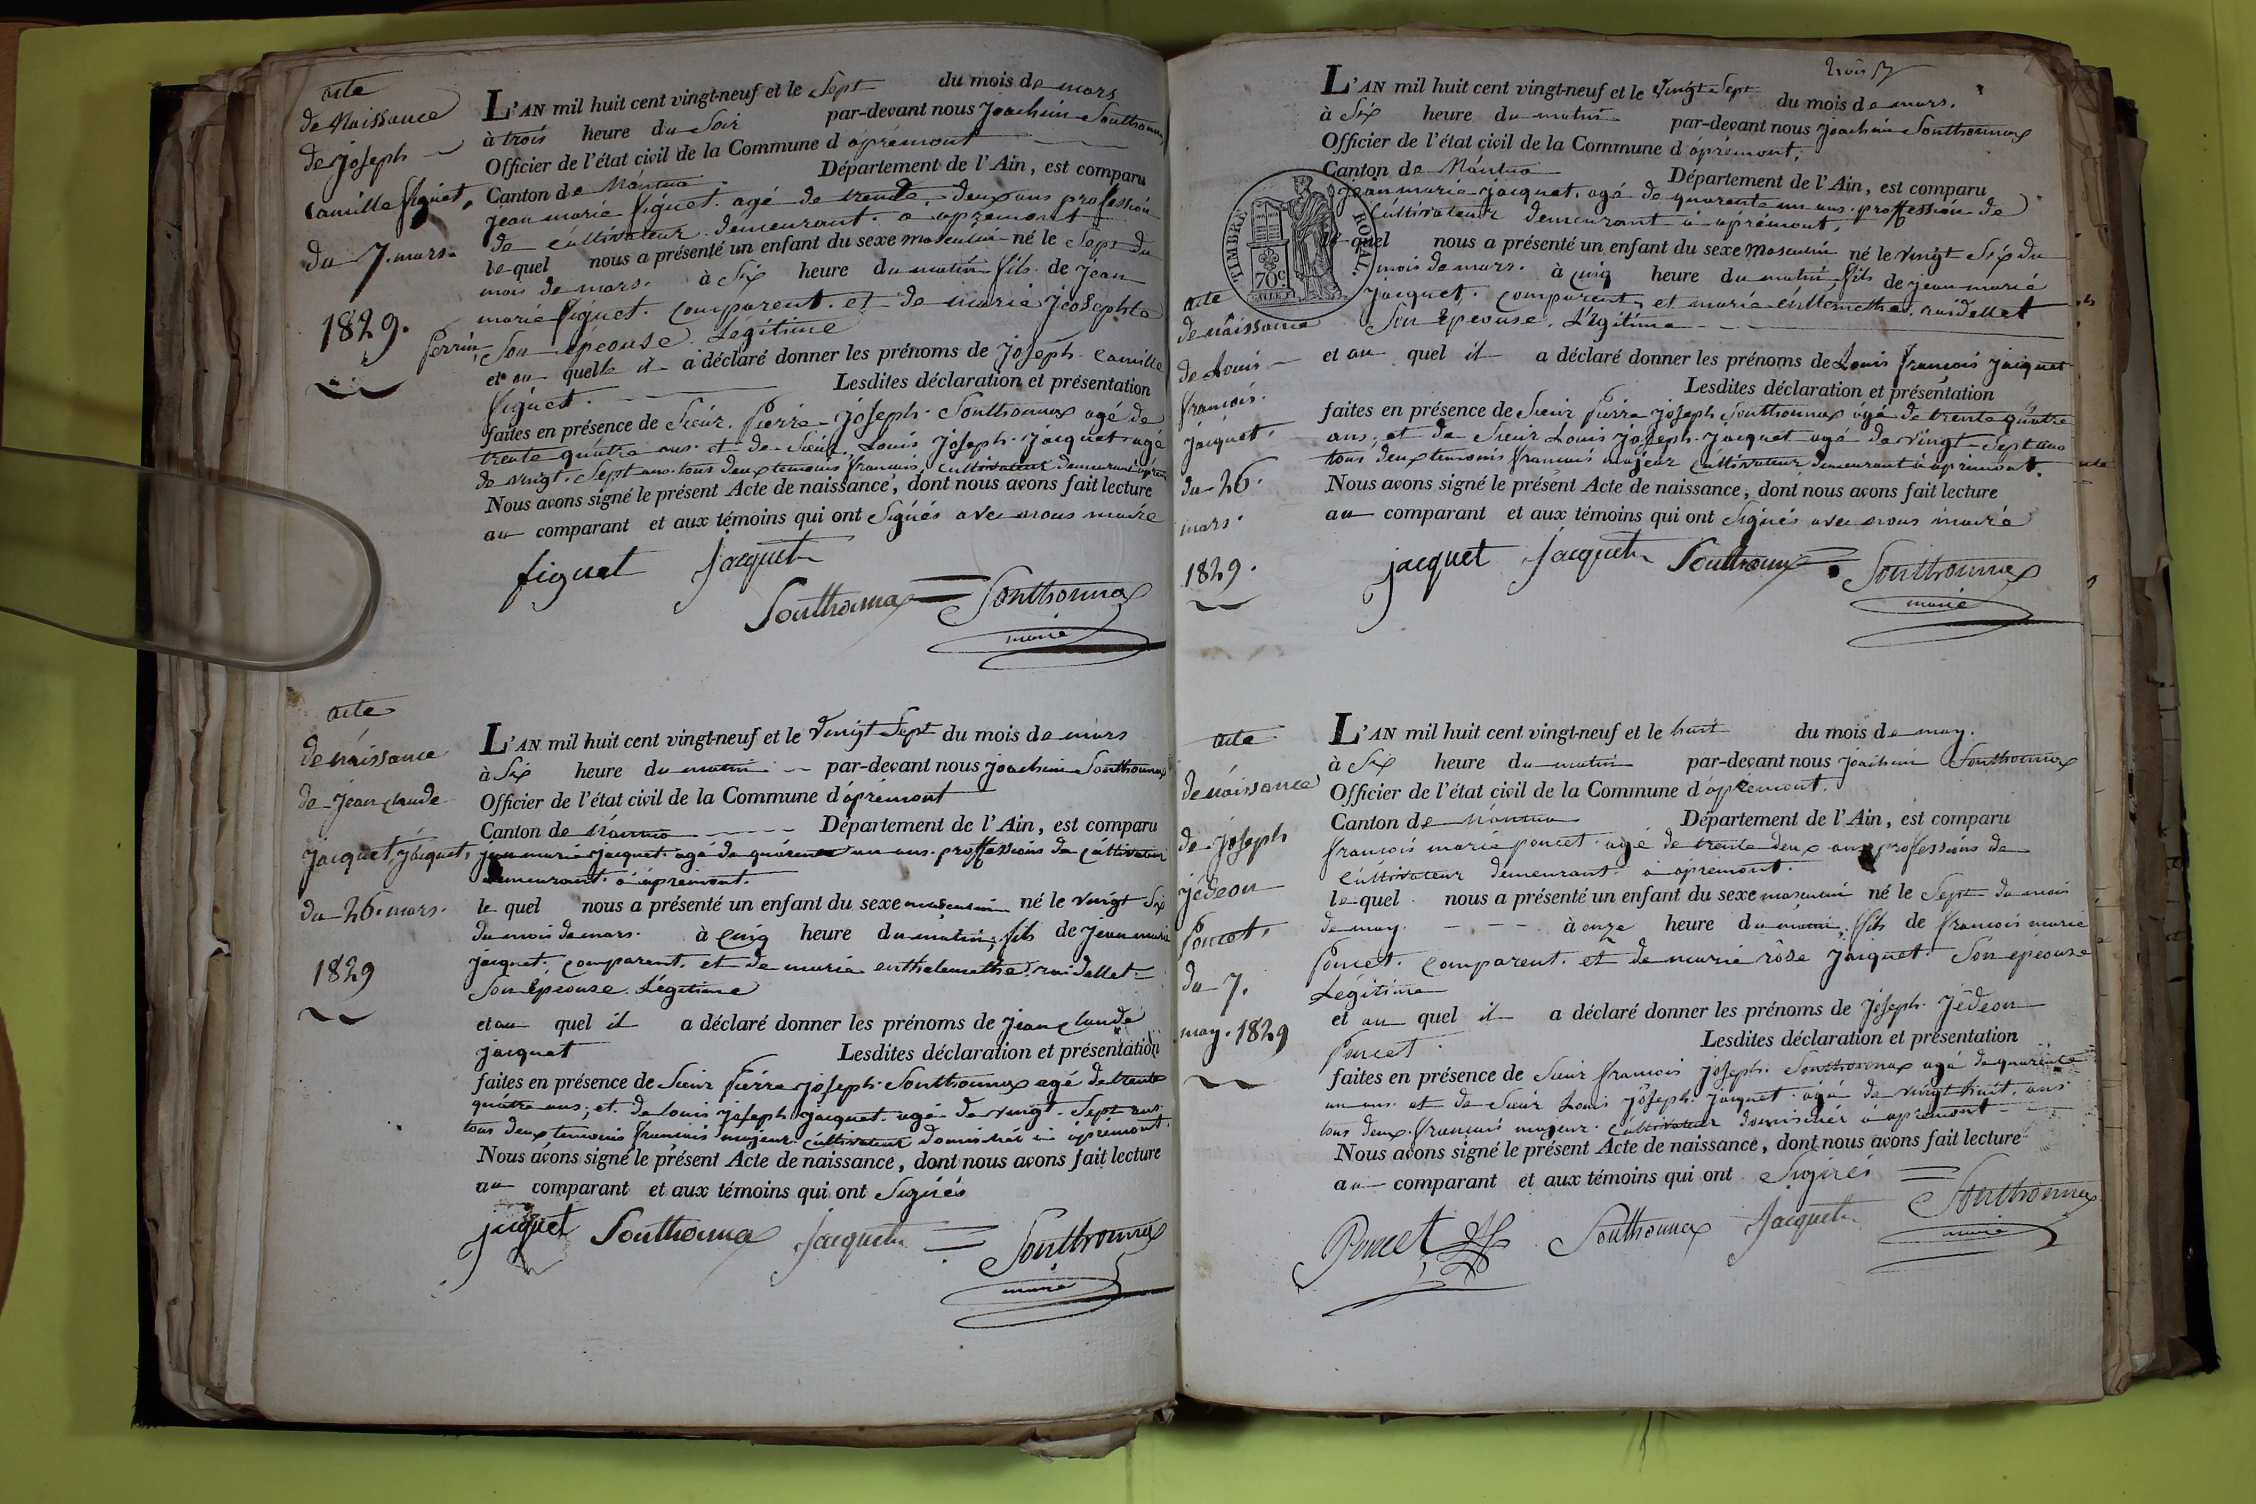 acte
de Naissance
de joseph
Camille figuet,
du 7. mars.
1829.
L'AN mil huit cent vingt-neuf et le Sept du mois de mars
à trois heure du Soir par-devant nous joachim Southonnax
Officier de l'état civil de la Commune d'aprémont
Canton de Nantua Département de l'Ain, est comparu
jean marie figuet. agé de trente. deux ans profession
de cultivateur. demeurant. a apremont
le quel nous a présenté un enfant du sexe masculin né le Sept du
mois de mars. à Six heure du matin fils. de jean
marie figuet. comparent. et de marie jéosephte
perrin, Son épeouse. Légitime
et au quelle il a déclaré donner les prénoms de joseph. Camille
figuet. Lesdites déclaration et présentation
faites en présence de Sieur. Pierre joseph. Southonnax agé de
trente quâtre ans. et de Sieur Louis joseph. jacquet agé
de vingt. Sept ans. tous deux temoins francais, cultivateur demeurant
Nous avons signé le présent Acte de naissance, dont nous avons fait lecture
au comparant et aux témoins qui ont Signés avec nous maire
figuet jacquet
Southonnax Southonnax
maire
acte
de náissance
de jean claude
jacquet, jacquet,
du 26. mars.
1829
L'AN mil huit cent vingt-neuf et le vingt Sept du mois de mars
à Six heure du matin par-devant nous joachim Southonnax
Officier de l'état civil de la Commune d'apremont
Canton de Nantua Département de l'Ain, est comparu
jean marie jacquet. agé de quárente un ans. proffessions de cultivateur
demeurant. à apremont.
le quel nous a présenté un enfant du sexe masculin né le vingt Six
du mois de mars. à cinq heure du matin, fils de jean marie
jacquet. comparent. et de marie enthelemethe. ruidellet
Son épeouse. Légitime
et au quel il a déclaré donner les prénoms de jean claude
jacquet Lesdites déclaration et présentation
faites en présence de Sieur Pierre joseph. Southonnax agé de trente
quâtre ans, et. de Louis joseph. jacquet. agé de vingt. Sept ans.
tous deux temoins francais majeur cultivateur domicilié à apremont.
Nous avons signé le présent Acte de naissance, dont nous avons fait lecture
au comparant et aux témoins qui ont Signés
jacquet Southonnax jacquet Southonnax
maire
trois
TIMBRE ROYAL.
70c.
acte
de náissance
de Louis
francois.
jacquet.
du 26.
mars.
1829.
L'AN mil huit cent vingt-neuf et le vingt Sept du mois de mars.
à Six heure du matin par-devant nous joachim Southonnax
Officier de l'état civil de la Commune d'aprémont,
Canton de Nantua Département de l'Ain, est comparu
jean marie jacquet. agé de quarente un ans. proffession de
cultivateur demeurant à aprémont,
le quel nous a présenté un enfant du sexe masculin né le vingt Six du
mois de mars. à cinq heure du matin, fils de jean marie
jacquet. comparent, et marie enthemethe. ruidellet
Son Epeouse. Légitime
et au quel il a déclaré donner les prénoms de Louis francois jacquet
Lesdites déclaration et présentation
faites en présence de Sieur Pierre joseph Southonnax agé de trente quâtre
ans, et de Sieur Louis joseph. jacquet agé de vingt Sept ans
tous deux temoins francais majeur cultivateur demeurant à apremont.
Nous avons signé le présent Acte de naissance, dont nous avons fait lecture
au comparant et aux témoins qui ont Signés avec nous maire
jacquet jacquet Southonnax Southonnax
maire
acte
de náissance
de joseph
jédeon
Poncet,
du 7.
may. 1829
L'AN mil huit cent vingt-neuf et le huit du mois de may.
à Six heure du matin par-devant nous joachim Southonnax
Officier de l'état civil de la Commune d'apremont.
Canton de Nantua Département de l'Ain, est comparu
francois marie poncet. agé de trente deux ans professions de
cultivateur demeurant. à apremont.
le quel nous a présenté un enfant du sexe masculin né le Sept du mois
de may. à onze heure du matin, fils de francois marie
Poncet. comparent. et de marie rôse jacquet. Son epeouse
Légitime
et au quel il a déclaré donner les prénoms de joseph. jédeon
Poncet. Lesdites déclaration et présentation
faites en présence de Sieur francois joseph. Southonnax agé de quarente
un ans. et de Sieur Louis joseph. jacquet. agé de vingt huit. ans
tous deux. francais majeur. cultivateur domicilié à apremont
Nous avons signé le présent Acte de naissance, dont nous avons fait lecture
au comparant et aux témoins qui ont Signés
Poncet Southonnax jacquet Southonnax
maire